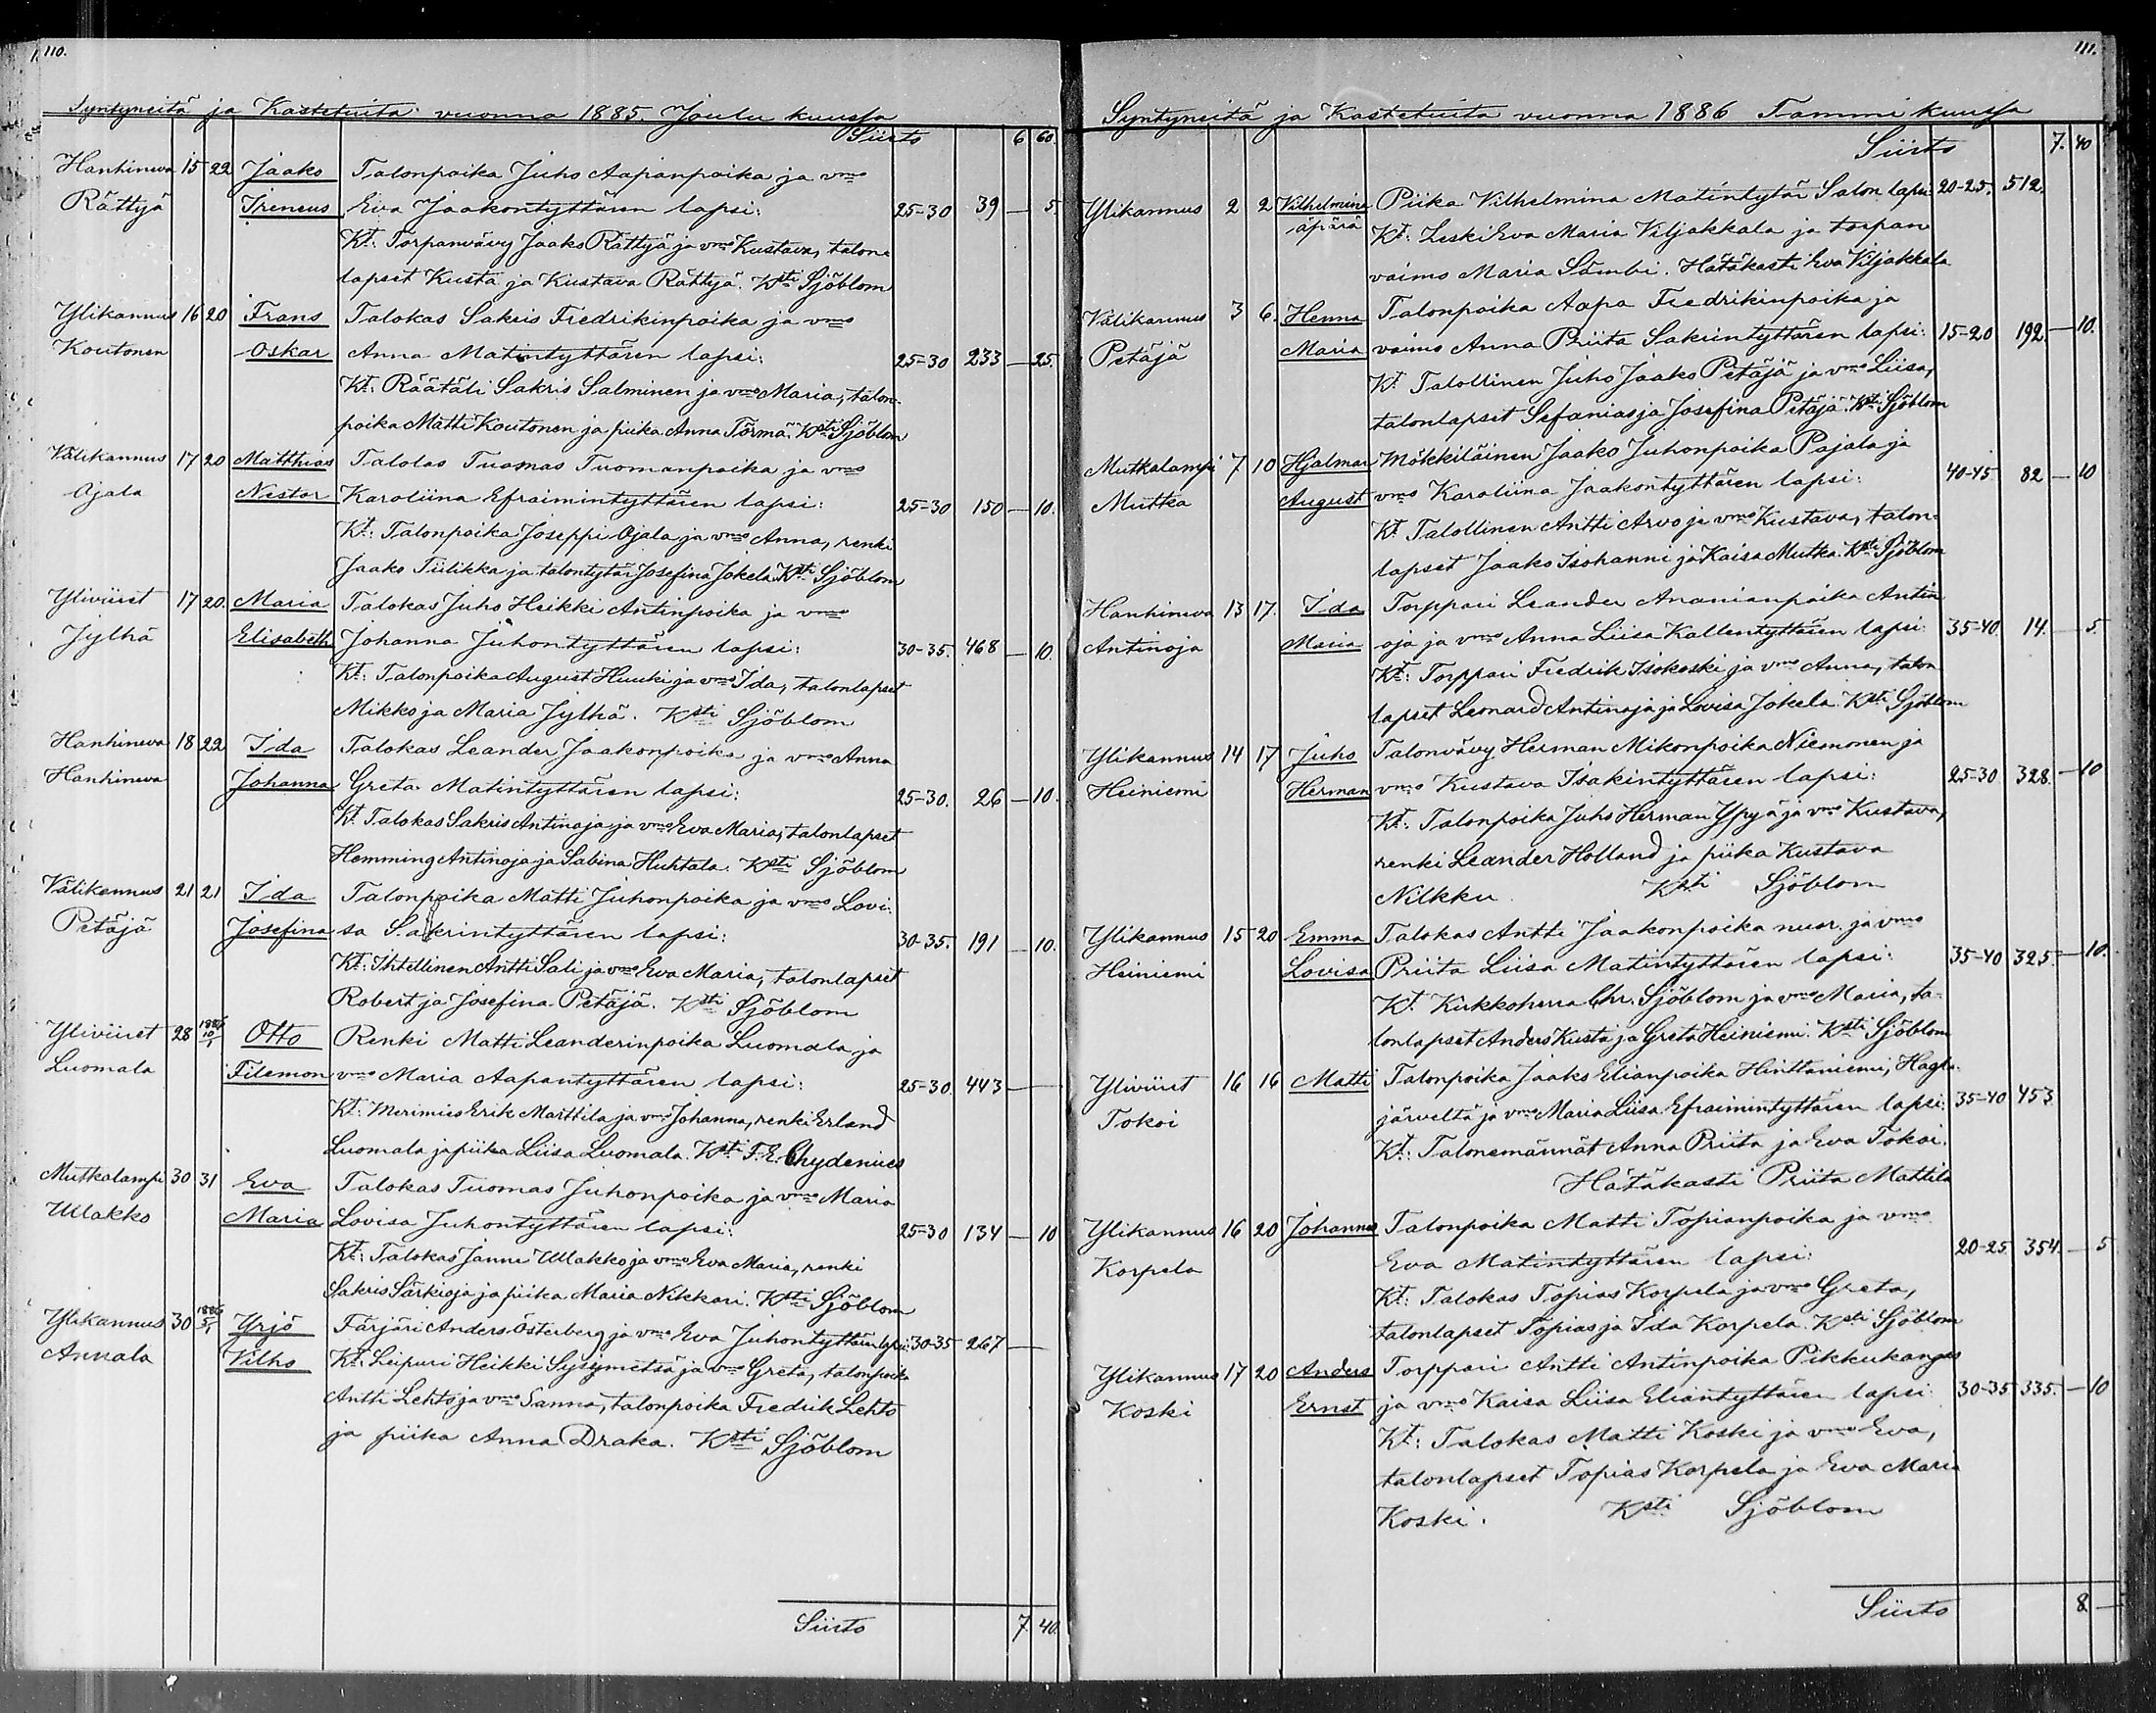 110.
Syntyneitä ja Kastetuita vuonna 1885. Joulu kuussa
Siirto 6 60.
Hanhineva 15 22 Jaako Talonpoika Juho Aapanpoika ja vmo
Rättyä Ireneus Eva Jaakontyttären lapsi: 25-30 39 — 5.
Kt: Torpanvävy Jaako Rättyä ja vmo Kustava, talon
lapset Kusta ja Kustava Rättyä. Ksti Sjöblom
Ylikannus 16 20 Frans Talokas Sakris Fredrikinpoika ja vmo
Koutonen Oskar Anna Matintyttären lapsi: 25-30 233 — 25.
Kt: Räätäli Sakris Salminen ja vmo Maria, talon-
poika Matti Koutonen ja piika Anna Törmä. Ksti Sjöblom
Välikannus 17 20 Matthias Talolas Tuomas Tuomanpoika ja vmo
Ojala Nestor Karoliina Efraimintyttären lapsi: 25-30 150 — 10.
Kt: Talonpoika Joseppi Ojala ja vmo Anna, renki
Jaako Tiilikka ja talontytär Josefina Jokela. Ksti Sjöblom
Yliviiret 17 20. Maria Talokas Juho Heikki Antinpoika ja vmo
Jylhä Elisabeth Johanna Juhontyttären lapsi: 30-35. 468 — 10.
Kt: Talonpoika August Huuki ja vmo Ida, talonlapset
Mikko ja Maria Jylhä. Ksti Sjöblom
Hanhineva 18 22 Ida Talokas Leander Jaakonpoika ja vmo Anna
Hanhineva Johanna Greta Matintyttären lapsi: 25-30. 26 — 10.
Kt. Talokas Sakris Antinoja ja vmo Eva Maria, talonlapset
Hemming Antinoja ja Sabina Huhtala. Ksti Sjöblom
Välikannus 21 21 Ida Talonpoika Matti Juhonpoika ja vmo Lovi-
Petäjä Josefina sa Sakrintyttären lapsi: 30-35. 191 — 10.
Kt: Ihtellinen Antti Sali ja vmo Eva Maria, talonlapset
Robert ja Josefina Petäjä. Ksti Sjöblom
Yliviiret 28 1886 10/1 Otto Renki Matti Leanderinpoika Luomala ja
Luomala Filemon vmo Maria Aapantyttären lapsi: 25-30 443 —
Kt: Merimies Erik Marttila ja vmo Johanna, renki Erland
Luomala ja piika Liisa Luomala. Ksti F. E. Chydenius
Mutkalampi 30 31 Eva Talokas Tuomas Juhonpoika ja vmo Maria
Ullakko Maria Lovisa Juhontyttären lapsi: 25-30 134 — 10
Kt: Talokas Janne Ullakko ja vmo Eva Maria, renki
Sakris Särkioja ja piika Maria Nikkari. Ksti Sjöblom
Ylikannus 30 1886 5/1 Yrjö Färjäri Anders Österberg ja vmo Eva Juhontyttären lapsi: 30-35 267 —
Annala Vilho Kt: Leipuri Heikki Sysymetsä ja vmo Greta, talonpoika
Antti Lehto ja vmo Sanna, talonpoika Fredrik Lehto
ja piika Anna Draka. Ksti Sjöblom
Siirto 7 40.
111.
Syntyneitä ja Kastetuita vuonna 1886 Tammi kuussa
Siirto 7. 40
Ylikannus 2 2 Vilhelmina Piika Vilhelmina Matintytär Salon lapsi 20-25. 512.
äpärä Kt: Leski Eva Maria Viljakkala ja torpan
vaimo Maria Sämbi. Hätäkasti Eva Viljakkala
Välikannus 3 6. Henna Talonpoika Aapa Fredrikinpoika ja
Petäjä Maria vaimo Anna Priita Sakrintyttären lapsi: 15-20 192. — 10.
Kt. Talollinen Juho Jaako Petäjä ja vmo Liisa,
talonlapset Sefanias ja Josefina Petäjä. Ksti Sjöblom
Mutkalampi 7 10 Hjalmar Mökkiläinen Jaako Juhonpoika Pajala ja
Muttka August vmo Karoliina Jaakontyttären lapsi: 40-45. 82 — 10
Kt. Talollinen Antti Arvo ja vmo Kustava, talon-
lapset Jaako Isohanni ja Kaisa Mutka. Ksti Sjöblom
Hanhineva 13 17. Ida Torppari Leander Ananianpoika Antin
Antinoja Maria oja ja vmo Anna Liisa Kallentyttären lapsi: 35-40. 14. — 5.
Kt: Torppari Fredrik Isokoski ja vmo Anna, talon
lapset Leonard Antinoja ja Lovisa Jokela. Ksti Sjöblom
Ylikannus 14 17 Juho Talonvävy Herman Mikonpoika Niemonen ja
Heiniemi Herman vmo Kustava Isakintyttären lapsi: 25-30 328. — 10
Kt: Talonpoika Juho Herman Ypyä ja vmo Kustava,
renki Leander Holland ja piika Kustava
Nilkku. Ksti Sjöblom
Ylikannus 15 20 Emma Talokas Antti Jaakonpoika nuor. ja vmo
Heiniemi Lovisa Priita Liisa Matintyttären lapsi: 35-40 325. — 10.
Kt. Kirkkoherra Chr. Sjöblom ja vmo Maria, ta-
lonlapset Anders Kusta ja Greta Heiniemi. Ksti Sjöblom
Yliviiret 16 16 Matti Talonpoika Jaako Elianpoika Hinttaniemi, Hagla-
Tokoi järveltä ja vmo Maria Liisa Efraimintyttären lapsi: 35-40 453
Kt: Talonemännät Anna Priita ja Eva Tokoi.
Hätäkasti Priita Mattila
Ylikannus 16 20 Johannes Talonpoika Matti Topianpoika ja vmo
Korpela Eva Matintyttären lapsi: 20-25. 354. — 5
Kt: Talokas Topias Korpela ja vmo Greta,
talonlapset Topias ja Ida Korpela. Ksti Sjöblom
Ylikannus 17 20 Anders Torppari Antti Antinpoika Pikkukangas
Koski Ernst ja vmo Kaisa Liisa Eliantyttären lapsi: 30-35 335. — 10
Kt: Talokas Matti Koski ja vmo Eva,
talonlapset Topias Korpela ja Eva Maria
Koski. Ksti Sjöblom
Siirto 8 —